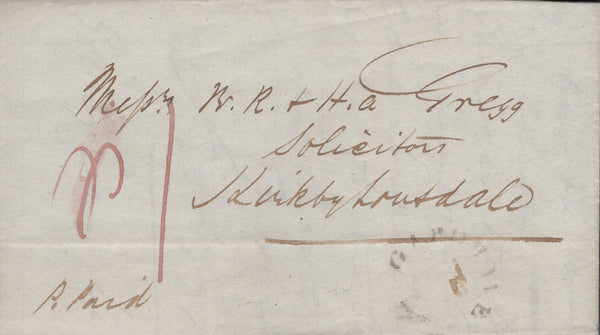 Messrs W. R. & H. a Gregg
Solicitors
Kirkby Lonsdale
P. Paid